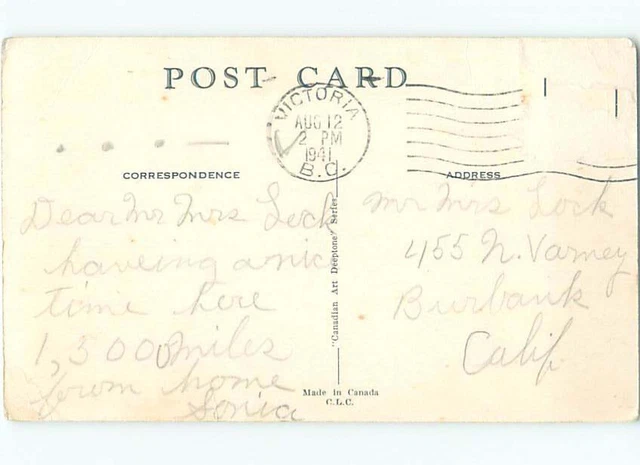 POST CARD
VICTORIA
AUG 12
2 PM
1941
B.C.
CORRESPONDENCE
ADDRESS
Dear Mr Mrs Lock
haveing a nic
time here
1,500 miles
from home
Sonia
"Canadian Art Deeptone" Series
Made in Canada
C.L.C.
Mr Mrs Lock
455 N. Varney
Burbank
Calif.